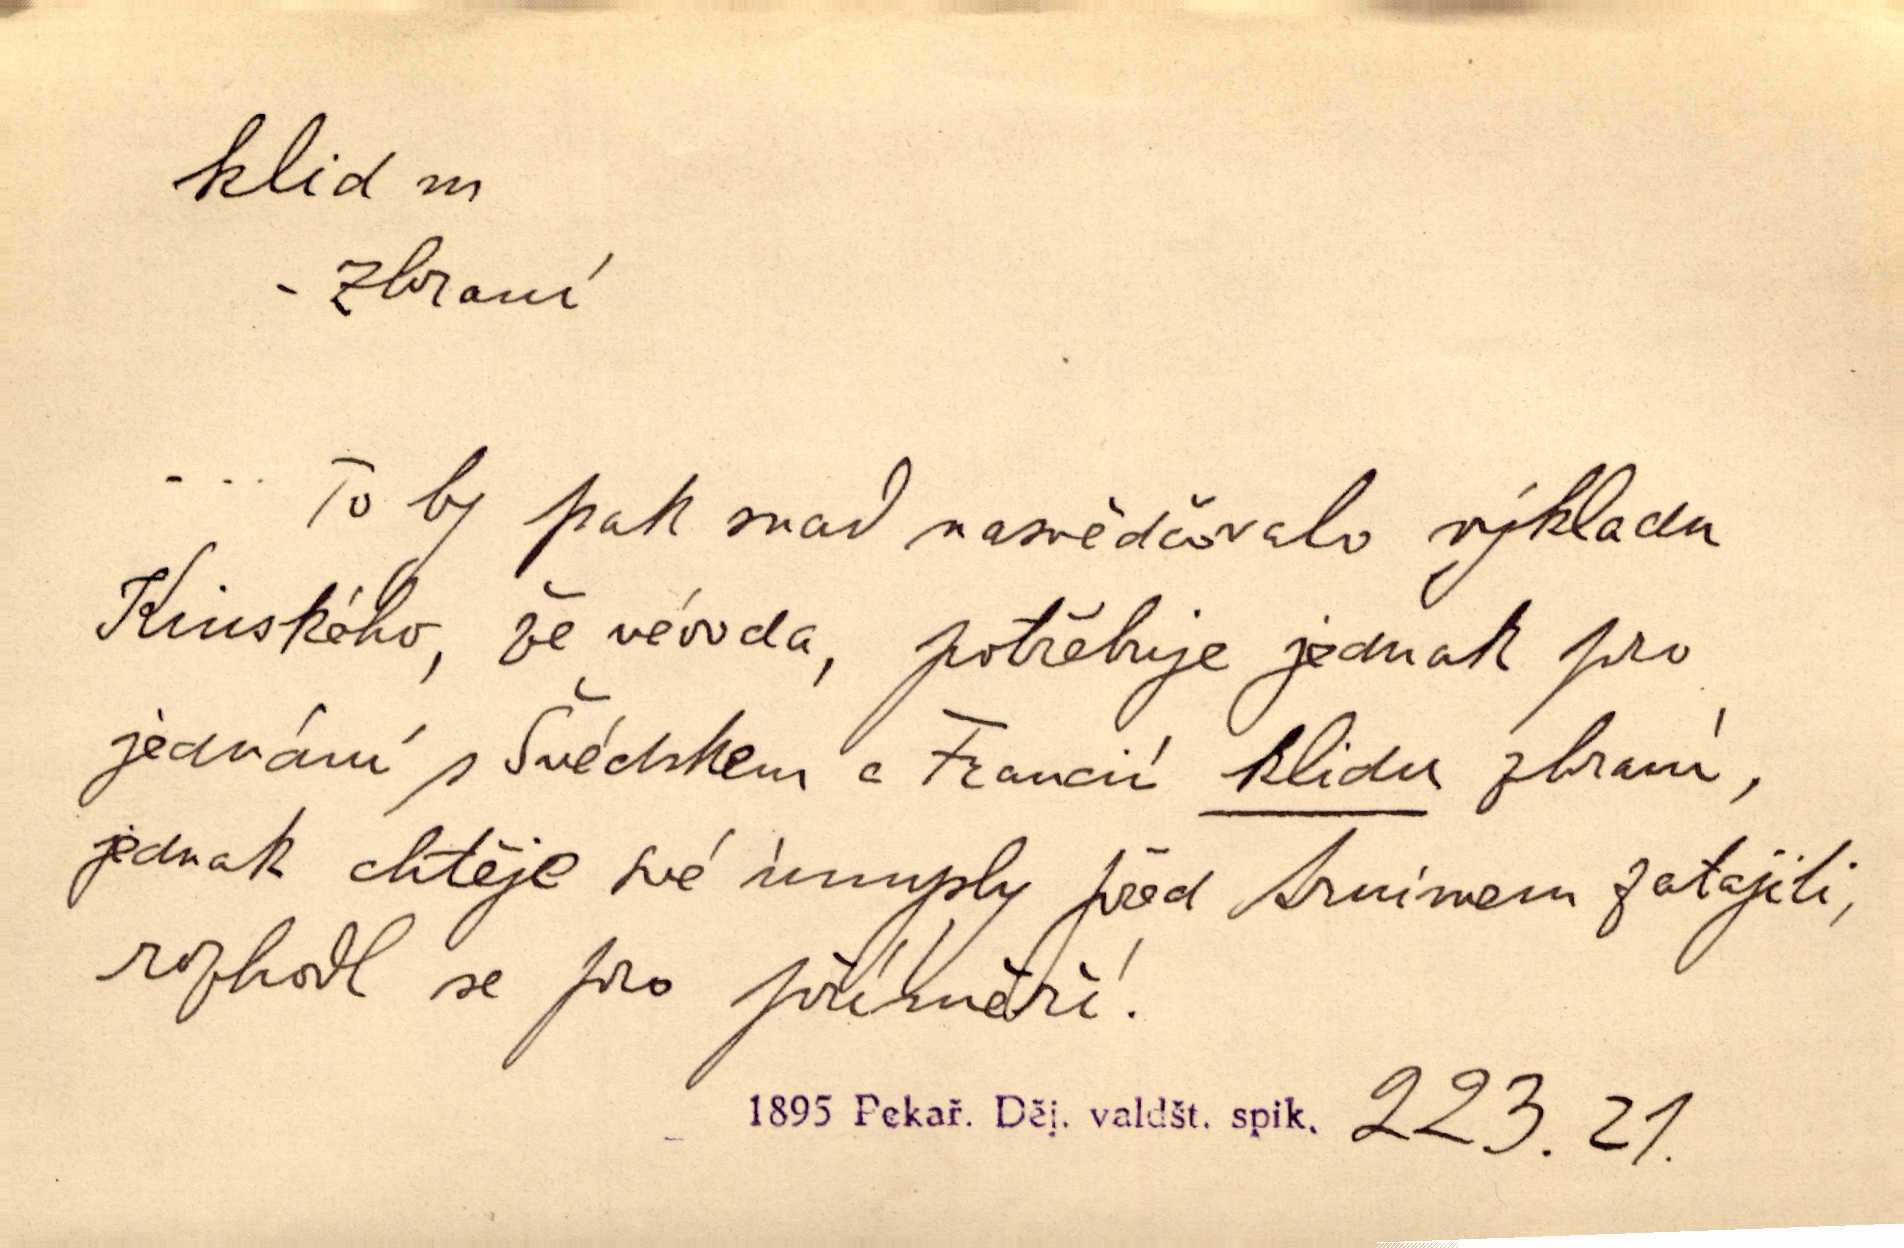 klid m
- zbraní
... To by pak snad nasvědčovalo výkladu
Kinského, že vévoda, potřebuje jednak pro
jednání s Švédskem a Francií klidu zbraní,
jednak chtěje své úmysly před Arnimem zatajiti,
rozhodl se pro příměří.
1895 Pekař. Děj. valdšt. spik. 223. 21.